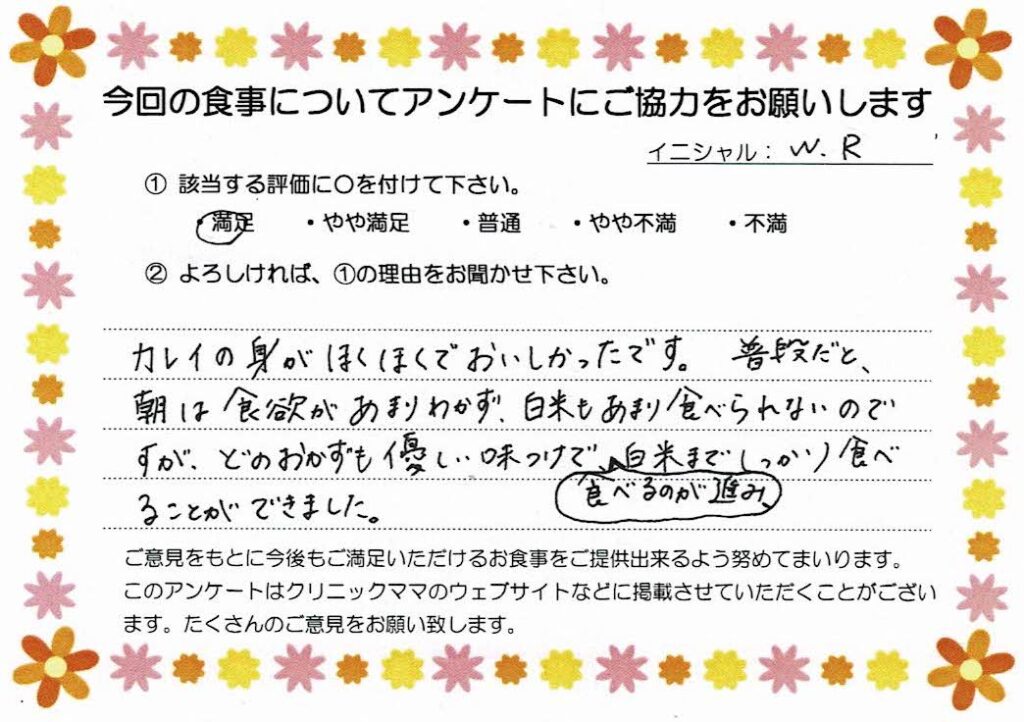 今回の食事についてアンケートにご協力をお願いします
イニシャル： W. R
① 該当する評価に〇を付けて下さい。
・満足 ・やや満足 ・普通 ・やや不満 ・不満
② よろしければ、①の理由をお聞かせ下さい。
カレイの身がほくほくでおいしかったです。 普段だと、
朝は食欲があまりわかず、白米もあまり食べられないので
すが、どのおかずも優しい味つけで、白米までしっかり食べ
食べるのが進み、
ることができました。
ご意見をもとに今後もご満足いただけるお食事をご提供出来るよう努めてまいります。
このアンケートはクリニックママのウェブサイトなどに掲載させていただくことがござい
ます。たくさんのご意見をお願い致します。